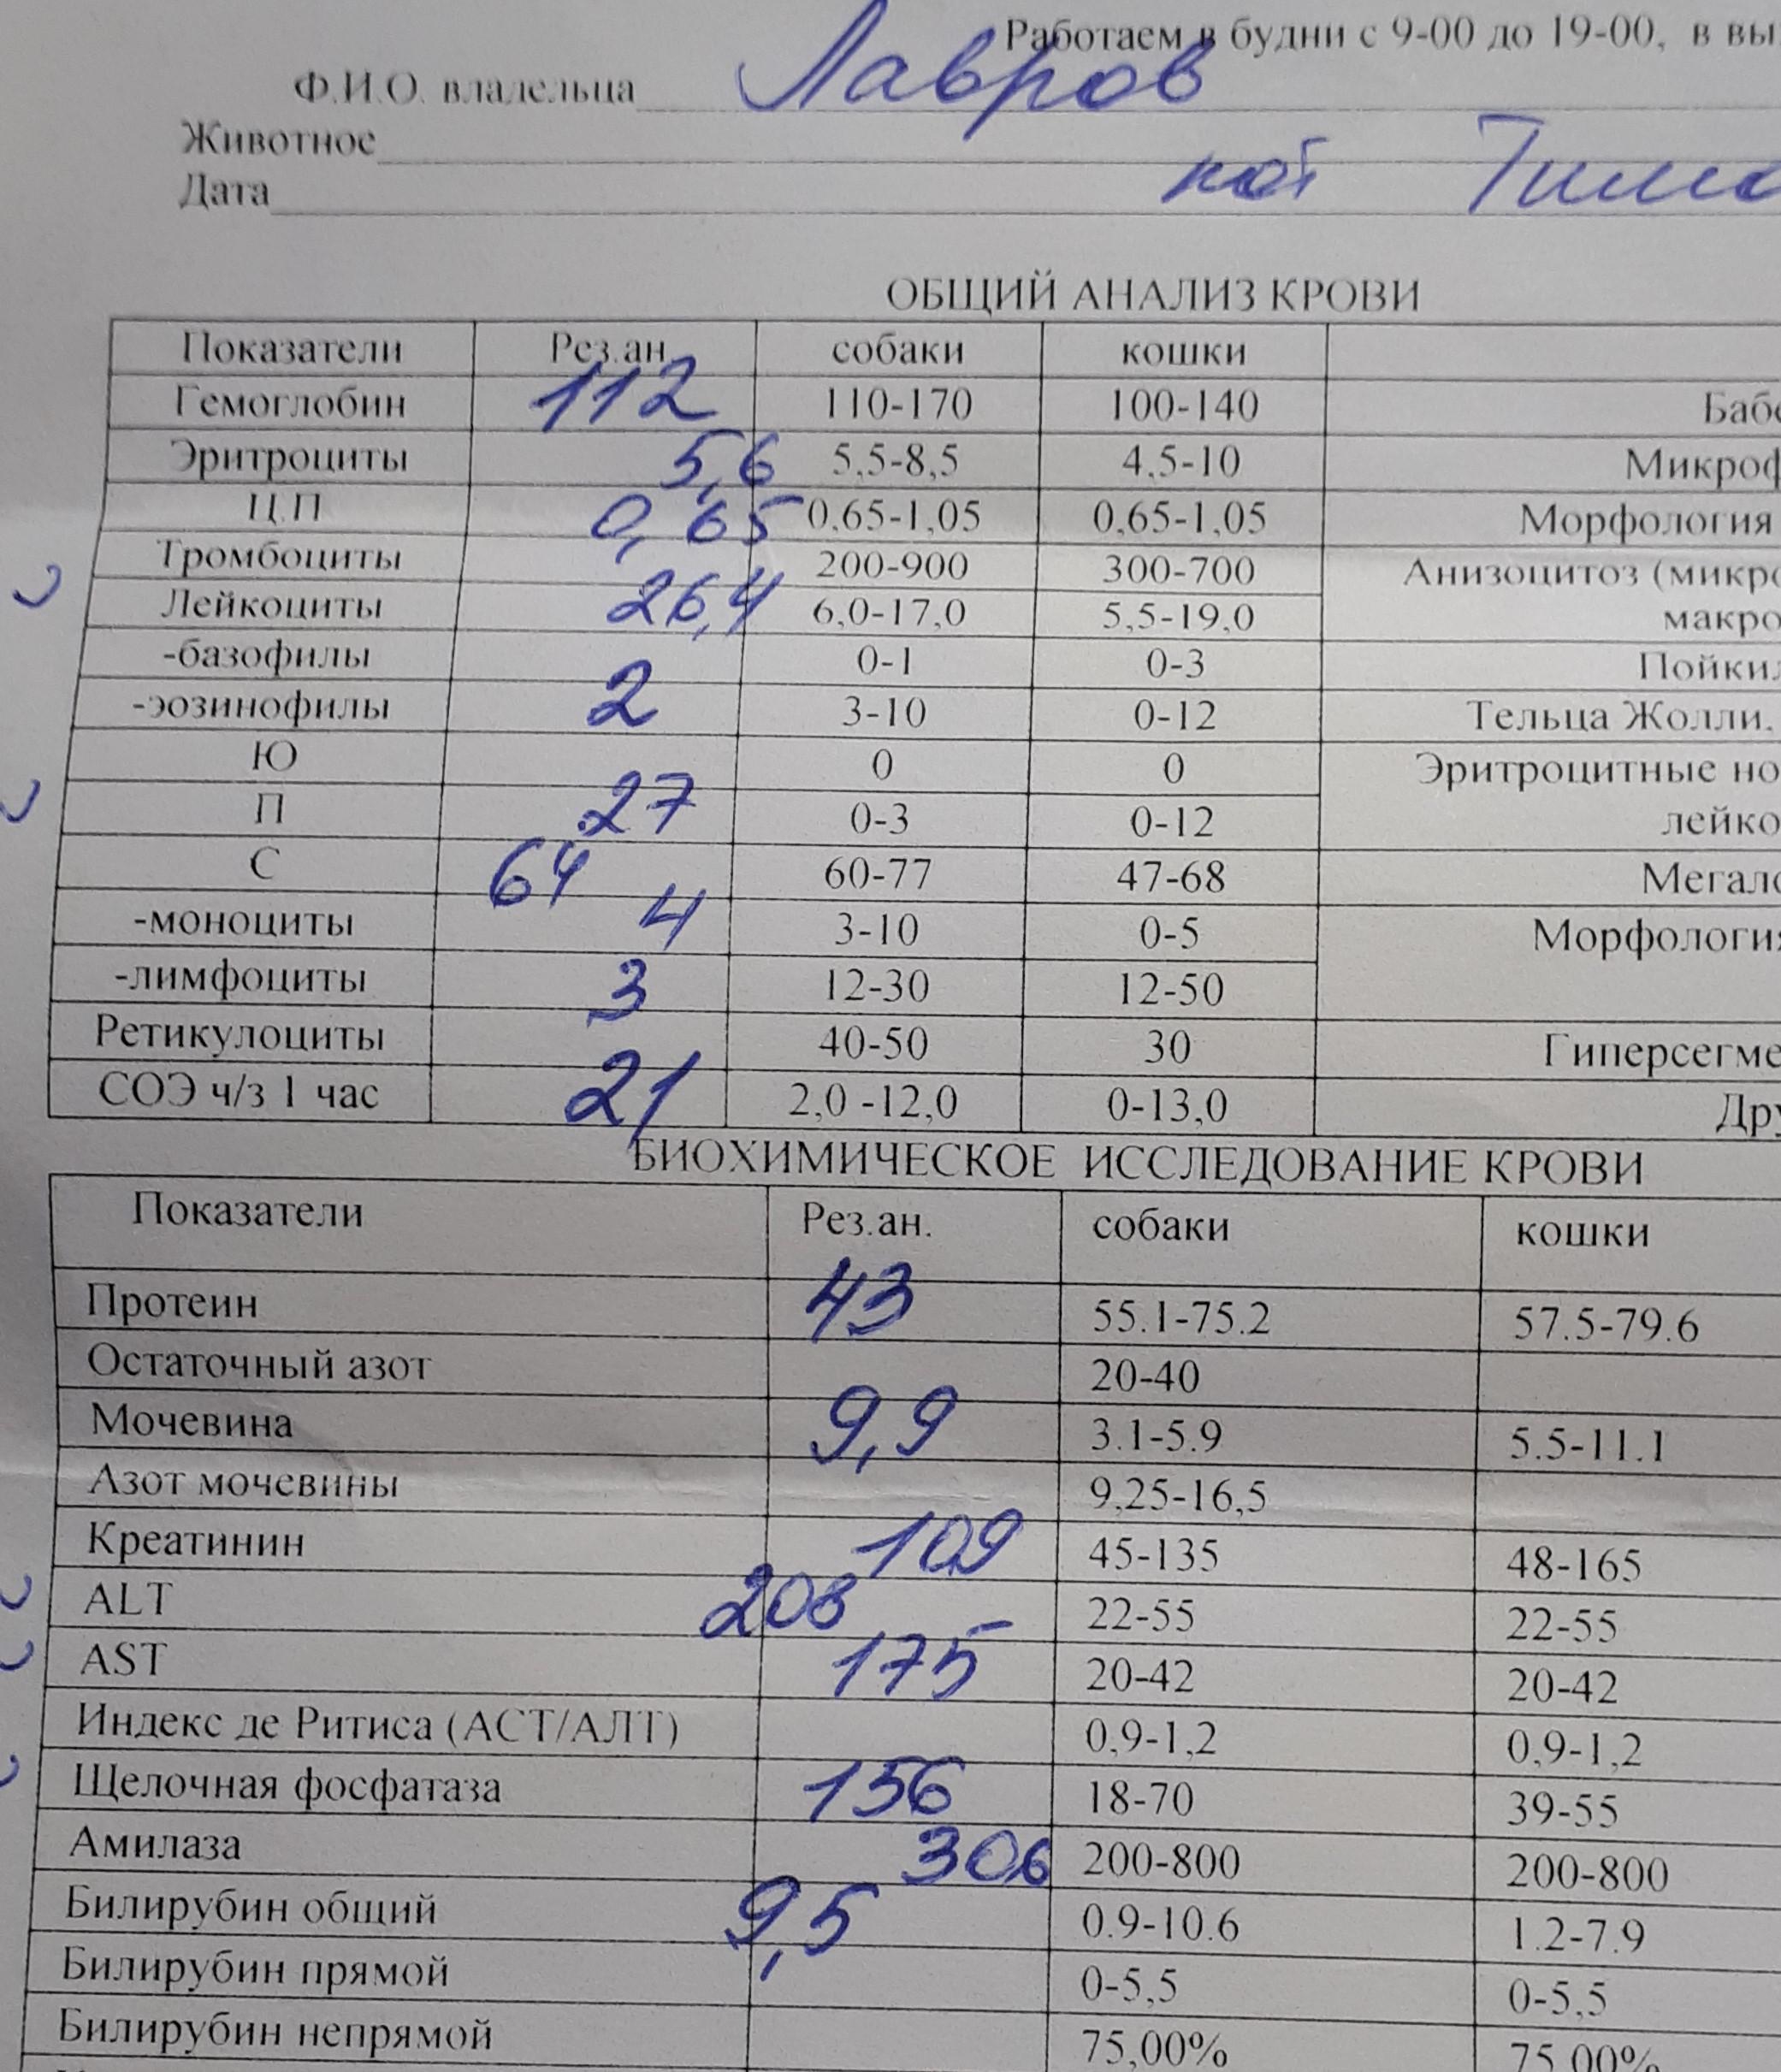 Работаем в будни с 9-00 до 19-00, в вы
Ф.И.О. владельца Лавров
Животное
кот Тимо
Дата
ОБЩИЙ АНАЛИЗ КРОВИ
Показатели Рез.ан. собаки кошки
Гемоглобин 112 110-170 100-140 Бабе
Эритроциты 5,6 5,5-8,5 4,5-10 Микроф
Ц.П 0,65 0,65-1,05 0,65-1,05 Морфология
Тромбоциты 200-900 300-700 Анизоцитоз (микро
Лейкоциты 26,4 6,0-17,0 5,5-19,0 макро
-базофилы 0-1 0-3 Пойкил
-эозинофилы 2 3-10 0-12 Тельца Жолли,
Ю 0 0 Эритроцитные но
П 27 0-3 0-12 лейко
С 64 60-77 47-68 Мегало
-моноциты 4 3-10 0-5 Морфология
-лимфоциты 3 12-30 12-50
Ретикулоциты 40-50 30 Гиперсегме
СОЭ ч/з 1 час 21 2,0 -12,0 0-13,0 Дру
БИОХИМИЧЕСКОЕ ИССЛЕДОВАНИЕ КРОВИ
Показатели Рез.ан. собаки кошки
Протеин 43 55.1-75.2 57.5-79.6
Остаточный азот 20-40
Мочевина 9,9 3.1-5.9 5.5-11.1
Азот мочевины 9,25-16,5
Креатинин 109 45-135 48-165
ALT 208 22-55 22-55
AST 175 20-42 20-42
Индекс де Ритиса (АСТ/АЛТ) 0,9-1,2 0,9-1,2
Щелочная фосфатаза 156 18-70 39-55
Амилаза 306 200-800 200-800
Билирубин общий 9,5 0.9-10.6 1.2-7.9
Билирубин прямой 0-5,5 0-5,5
Билирубин непрямой 75,00% 75,00%